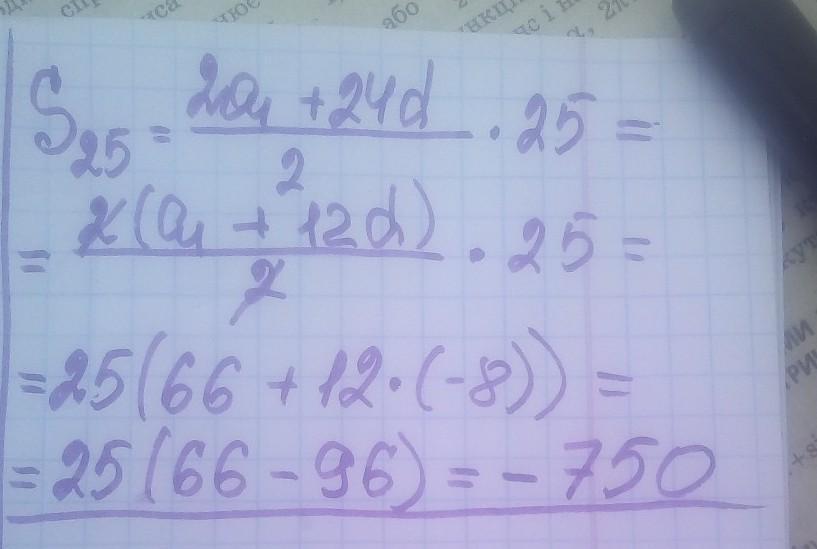 або
S₂₅ = (2a₁ + 24d)/2 · 25 =
= 2(a₁ + 12d)/2 · 25 =
= 25(66 + 12·(-8)) =
= 25(66 - 96) = - 750